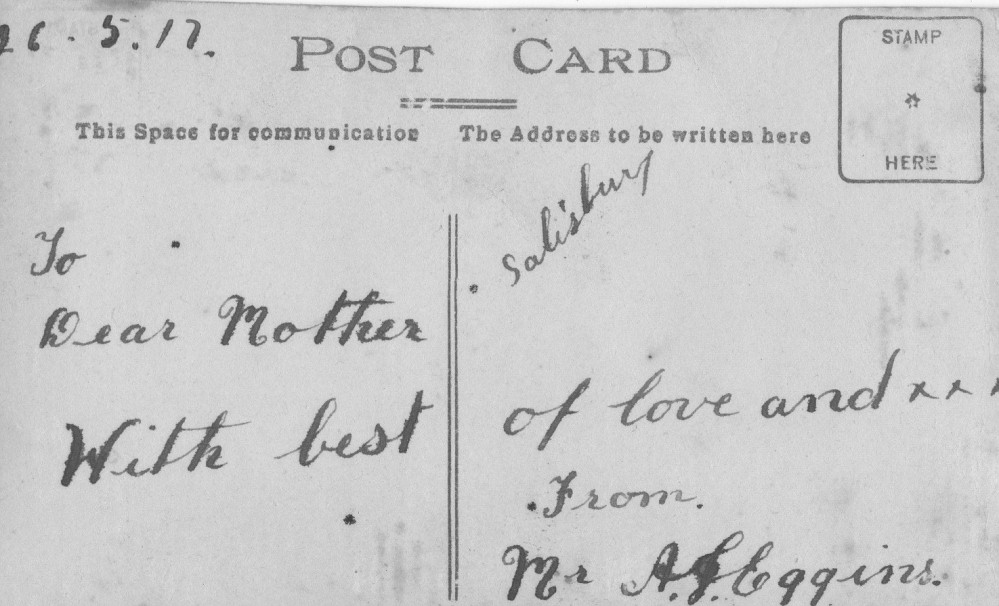 26.5.17.
POST CARD
STAMP
HERE
This Space for communication
The Address to be written here
Salisbury
To
Dear Mother
With best
of love and xxx
From.
Mr A.J. Eggins.